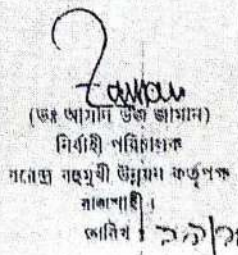 Zaman
(ডঃ আসাদ উজ জামান)
নির্বাহী পরিচালক
বরেন্দ্র বহুমুখী উন্নয়ন কর্তৃপক্ষ
রাজশাহী।
তারিখ